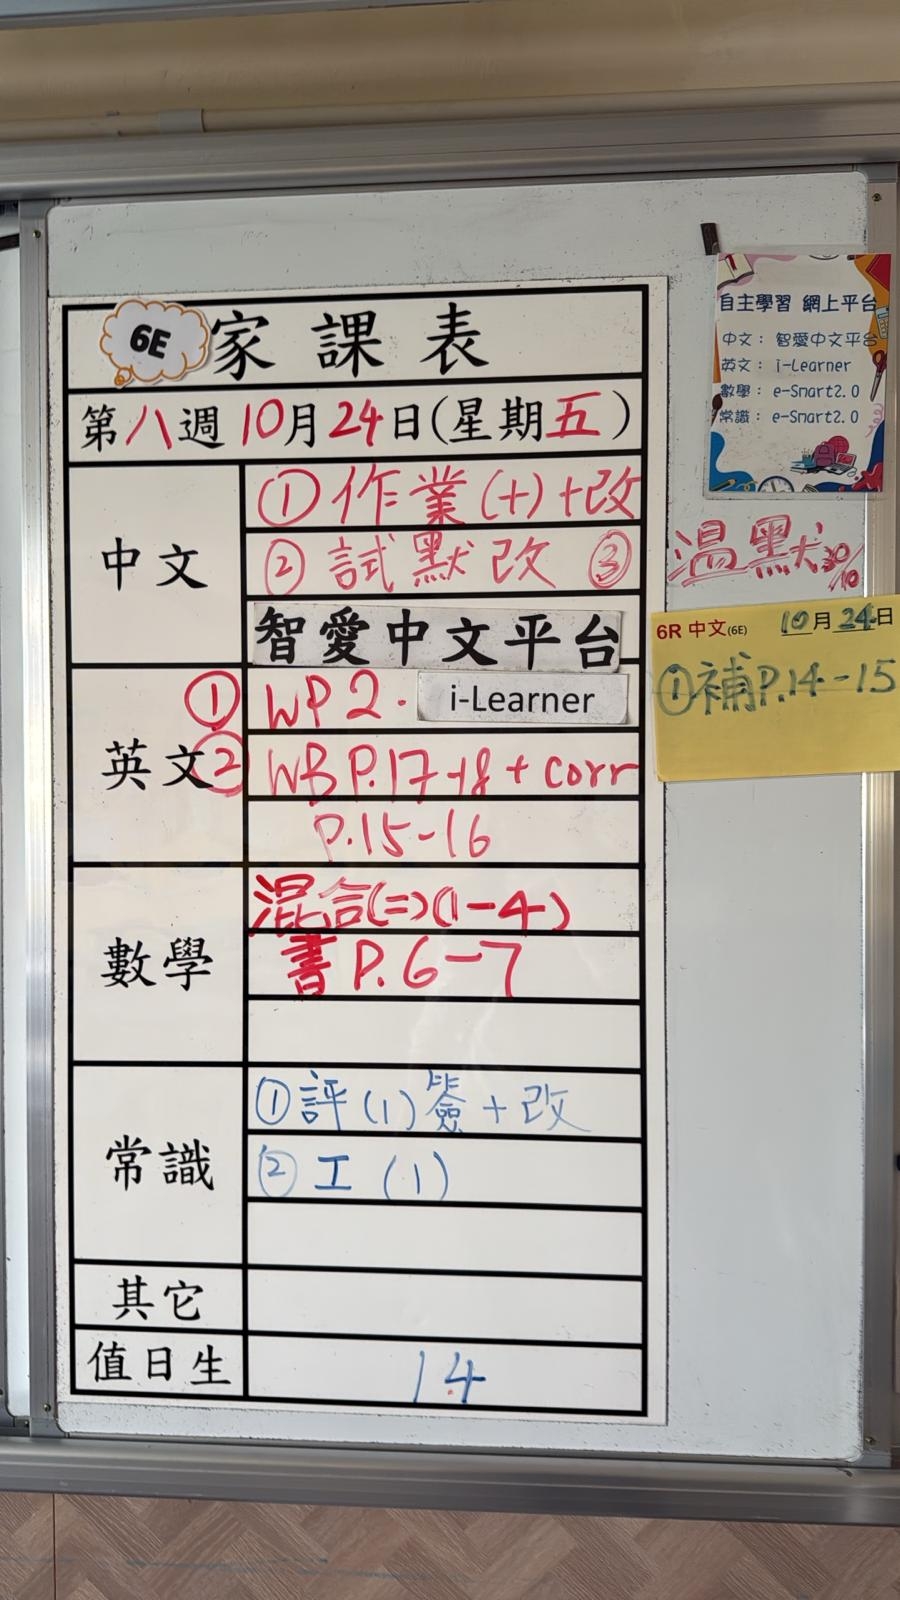 6E 家課表
第八週10月24日(星期五)
中文
①作業(十)+改
②試默改 ③
智愛中文平台
英文
① WP2. i-Learner
② WB P.17-18 + corr
P.15-16
數學
混合(二)(1-4)
書 P.6-7
常識
①評(1)簽+改
②工(1)
其它
值日生
14
自主學習 網上平台
中文：智愛中文平台
英文：i-Learner
數學：e-Smart2.0
常識：e-Smart2.0
溫默30/10
6R 中文(6E) 10月24日
①補P.14-15